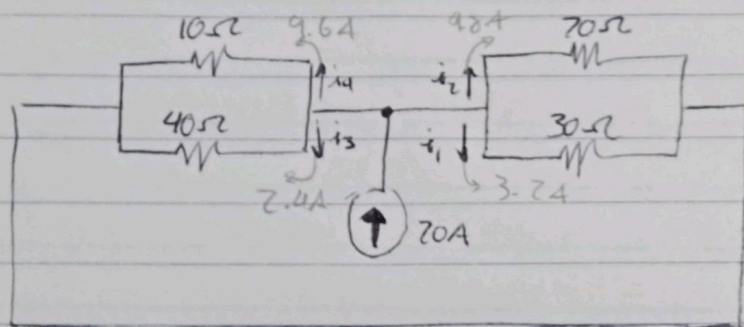 10Ω 9.6A 4.8A 20Ω
i4 i2
40Ω i3 i1 30Ω
2.4A 3.2A
20A